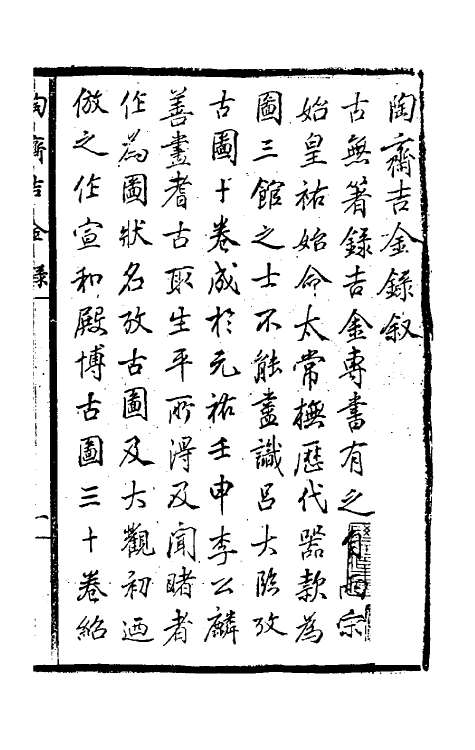 陶齋吉金錄叙
古無著錄吉金專書有之自兩宗
始皇祐始命太常橅歷代器款為
圖三館之士不能盡識呂大臨攷
古圖十卷成於元祐壬申李公麟
善畫耆古取生平所得及聞睹者
作為圖狀名攷古圖及大觀初迺
倣之作宣和殿博古圖三十卷紹
陶齋吉金錄
一